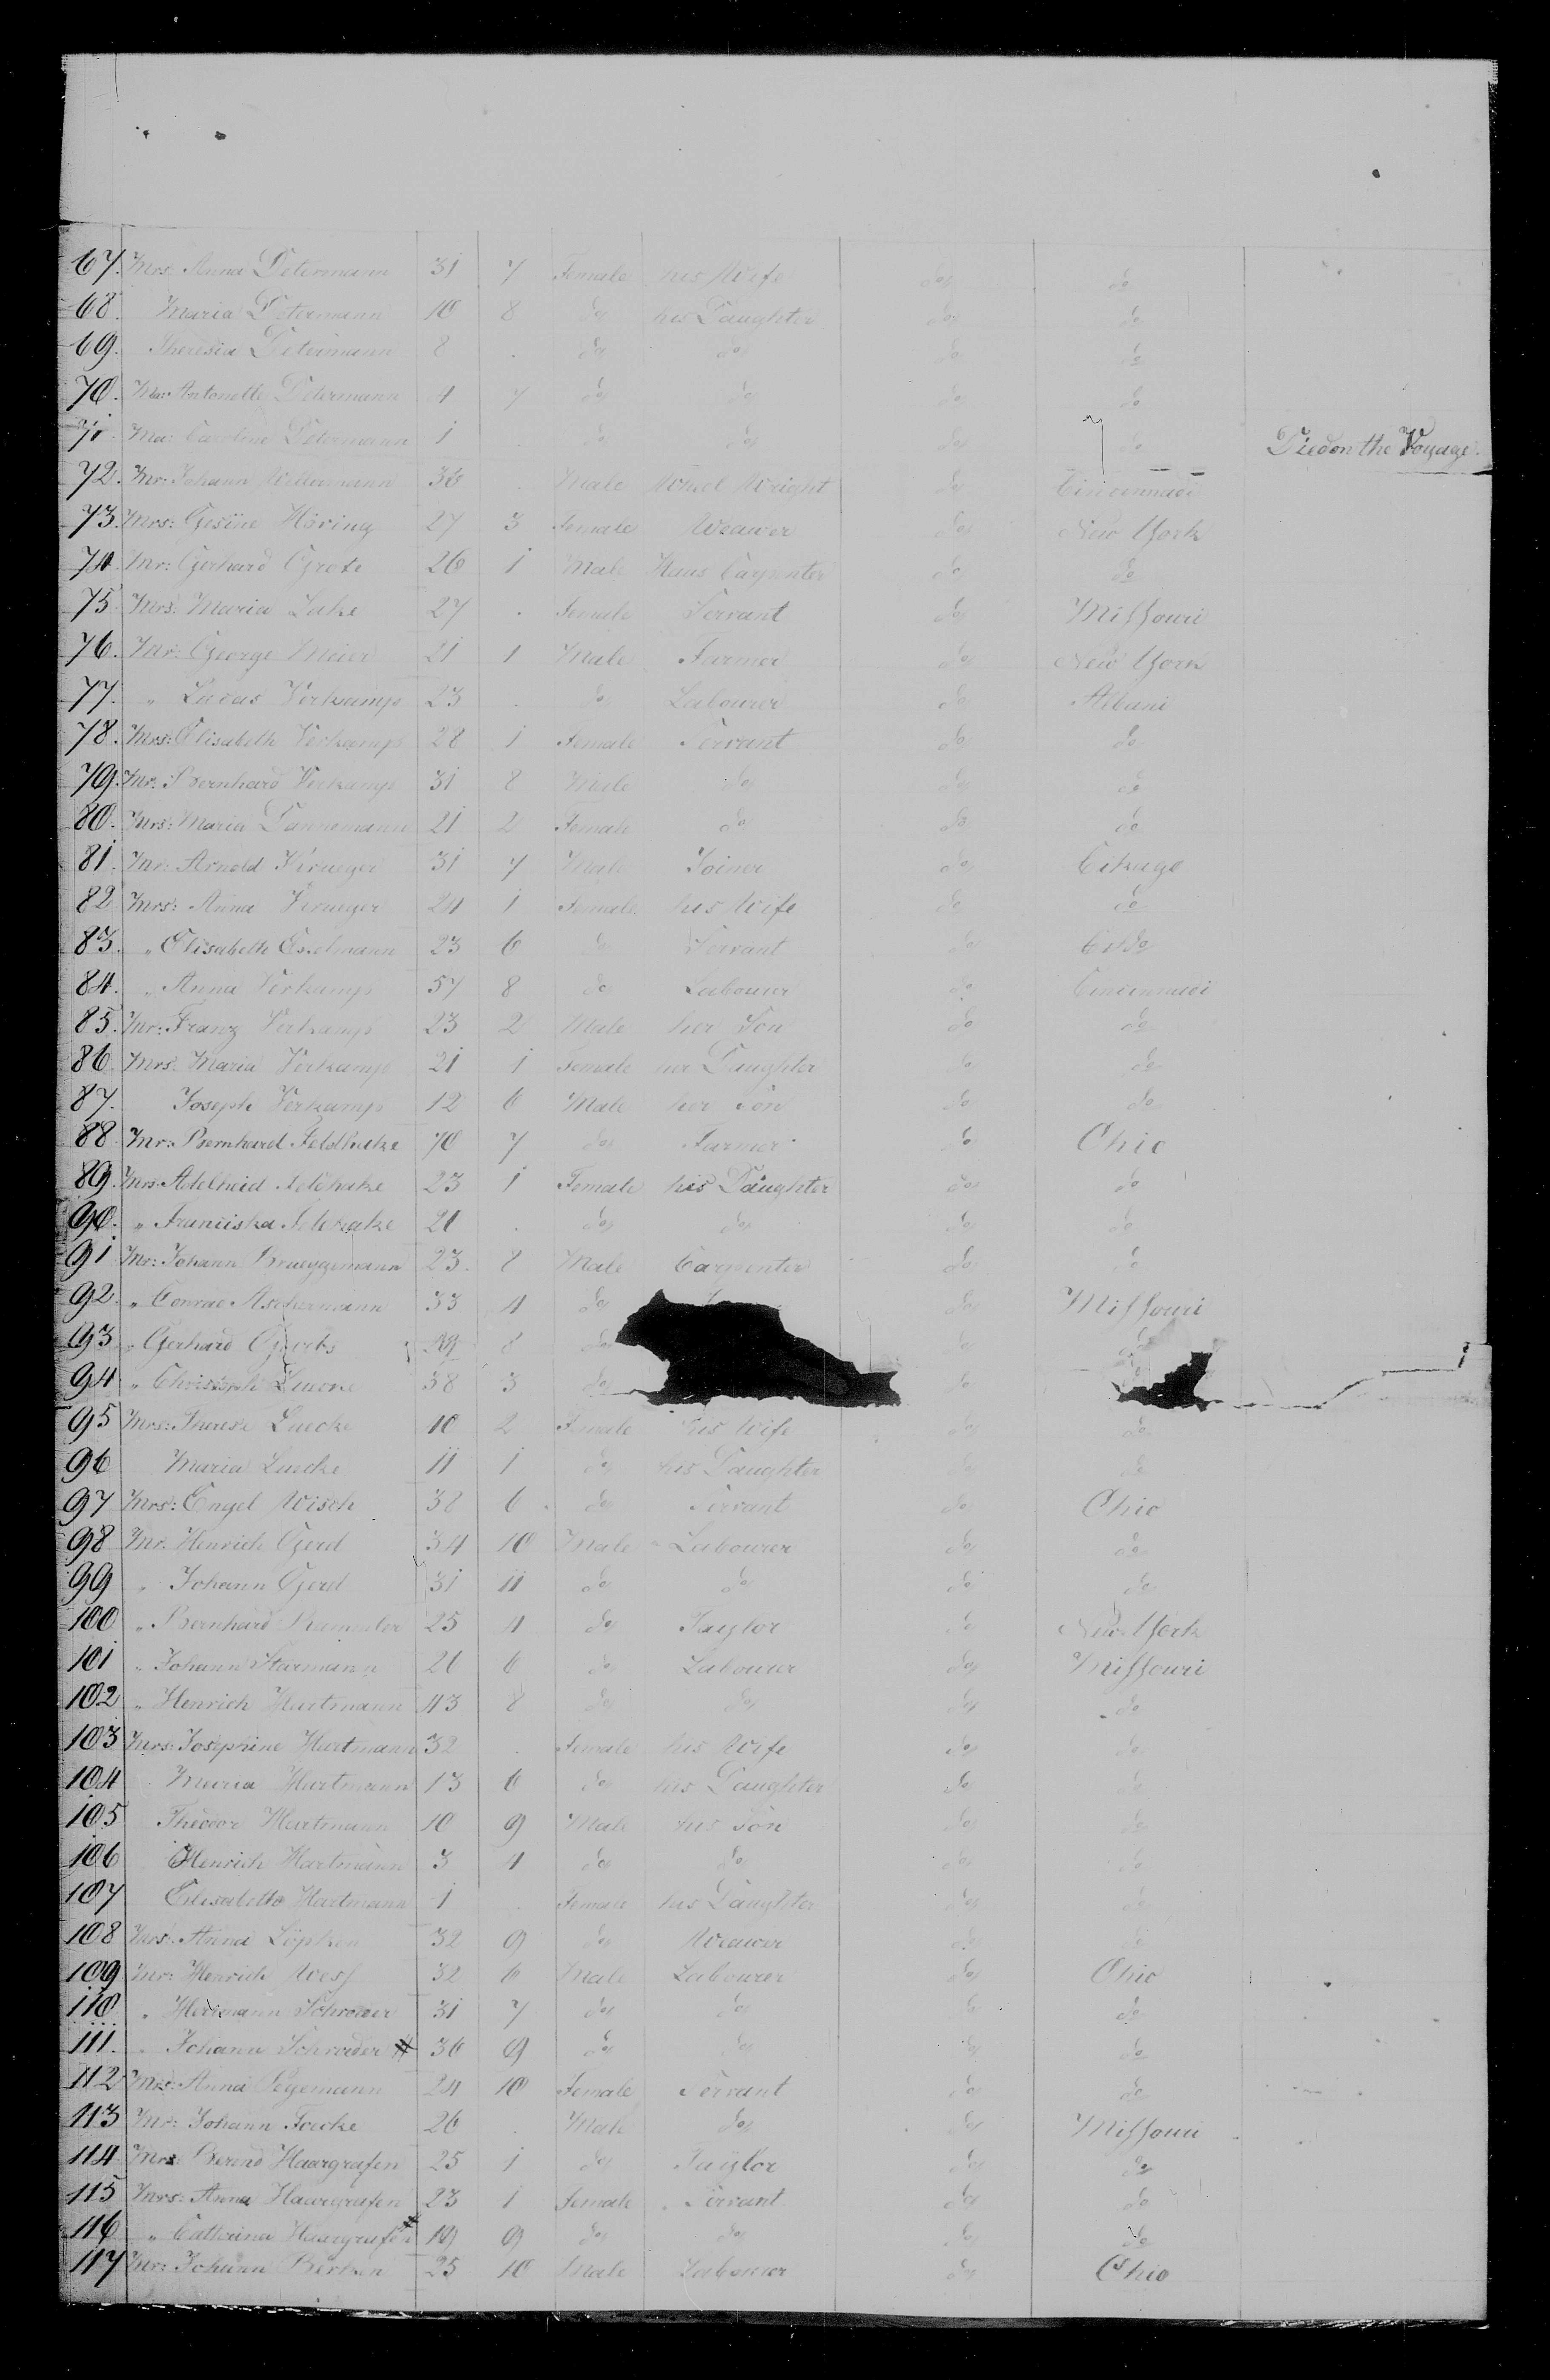 67. Mrs: Anna Determann 31 7 Female his Wife do do
68. Maria Determann 10 8 do his Daughter do do
69. Theresia Determann 8 . do do do do
70. Ma: Antonette Determann 4 7 do do do do
71. Ma: Caroline Determann 1 . do do do do Died on the Voyage.
72. Mr: Johann Willermann 36 . Male Wheel Wright do Cincinnati
73. Mrs: Gesine Höving 27 3 Female Weawer do New York
74. Mr: Gerhard Grote 26 1 Male Haus Carpenter do do
75. Mrs: Maria Lake 27 . Female Servant do Missouri
76. Mr: George Meier 21 1 Male Farmer do New York
77. " Lucas Verkamp 23 . do Labourer do Albani
78. Mrs: Elisabeth Verkamp 28 1 Female Servant do do
79. Mr: Bernhard Verkamp 31 8 Male do do do
80. Mrs: Maria Dannemann 21 2 Female do do do
81. Mr: Arnold Krueger 31 7 Male Joiner do Cikago
82 Mrs: Anna Krueger 24 1 Female his Wife do do
83. " Elisabeth Eselmann 23 6 do Servant do do
84. " Anna Verkamp 57 8 do Labourer do Cincinnati
85. Mr: Franz Verkamp 23 2 Male her Son do do
86. Mrs: Maria Verkamp 21 1 Female her Daughter do do
87. Joseph Verkamp 12 6 Male her Son do do
88. Mr: Bernhard Feldhake 70 7 do Farmer do Ohio
89. Mrs: Adelheid Feldhake 23 1 Female his Daughter do do
90. " Franziska Feldhake 21 . do do do do
91 Mr: Johann Brueggemann 23 8 Male Carpenter do do
92. " Conrad Aschermann 33 4 do do Missouri
93 " Gerhard 8 do do do
94 " Christoph Luecke 38 3 do do
95 Mrs: Therese Luecke 40 2 Female his Wife do do
96 Maria Luecke 11 1 do his Daughter do do
97 Mrs: Engel Wisch 38 6 do Servant do Ohio
98 Mr: Henrich Gerd 34 10 Male Labourer do do
99 " Johann Gerd 31 11 do do do do
100 " Bernhard 25 4 do Taylor do New York
101 " Johann Starmann 21 6 do Labourer do Missouri
102 " Henrich Hartmann 43 8 do do do do
103 Mrs: Josephine Hartmann 32 . Female his Wife do do
104 Maria Hartmann 13 6 do his Daughter do do
105 Theodor Hartmann 10 9 Male his Son do do
106 Henrich Hartmann 3 4 do do do do
107 Elisabetha Hartmann 1 . Female his Daughter do do
108 Mrs: Anna Löpken 32 9 do Weawer do do
109 Mr: Henrich Wess 32 6 Male Labourer do Ohio
110 " Hermann Schroder 31 7 do do do do
111. " Johann Schroder # 36 9 do do do do
112 Mrs: Anna Pegemann 24 10 Female Servant do do
113 Mr: Johann Focke 26 . Male do do Missouri
114 Mrs Berend Haargrafen 25 1 do Taylor do do
115 Mrs: Anna Haargrafen 23 1 Female Servant do do
116 " Cathrina Haargrafen # 19 9 do do do do
117 Mr: Johann Berken 25 10 Male Labourer do Ohio